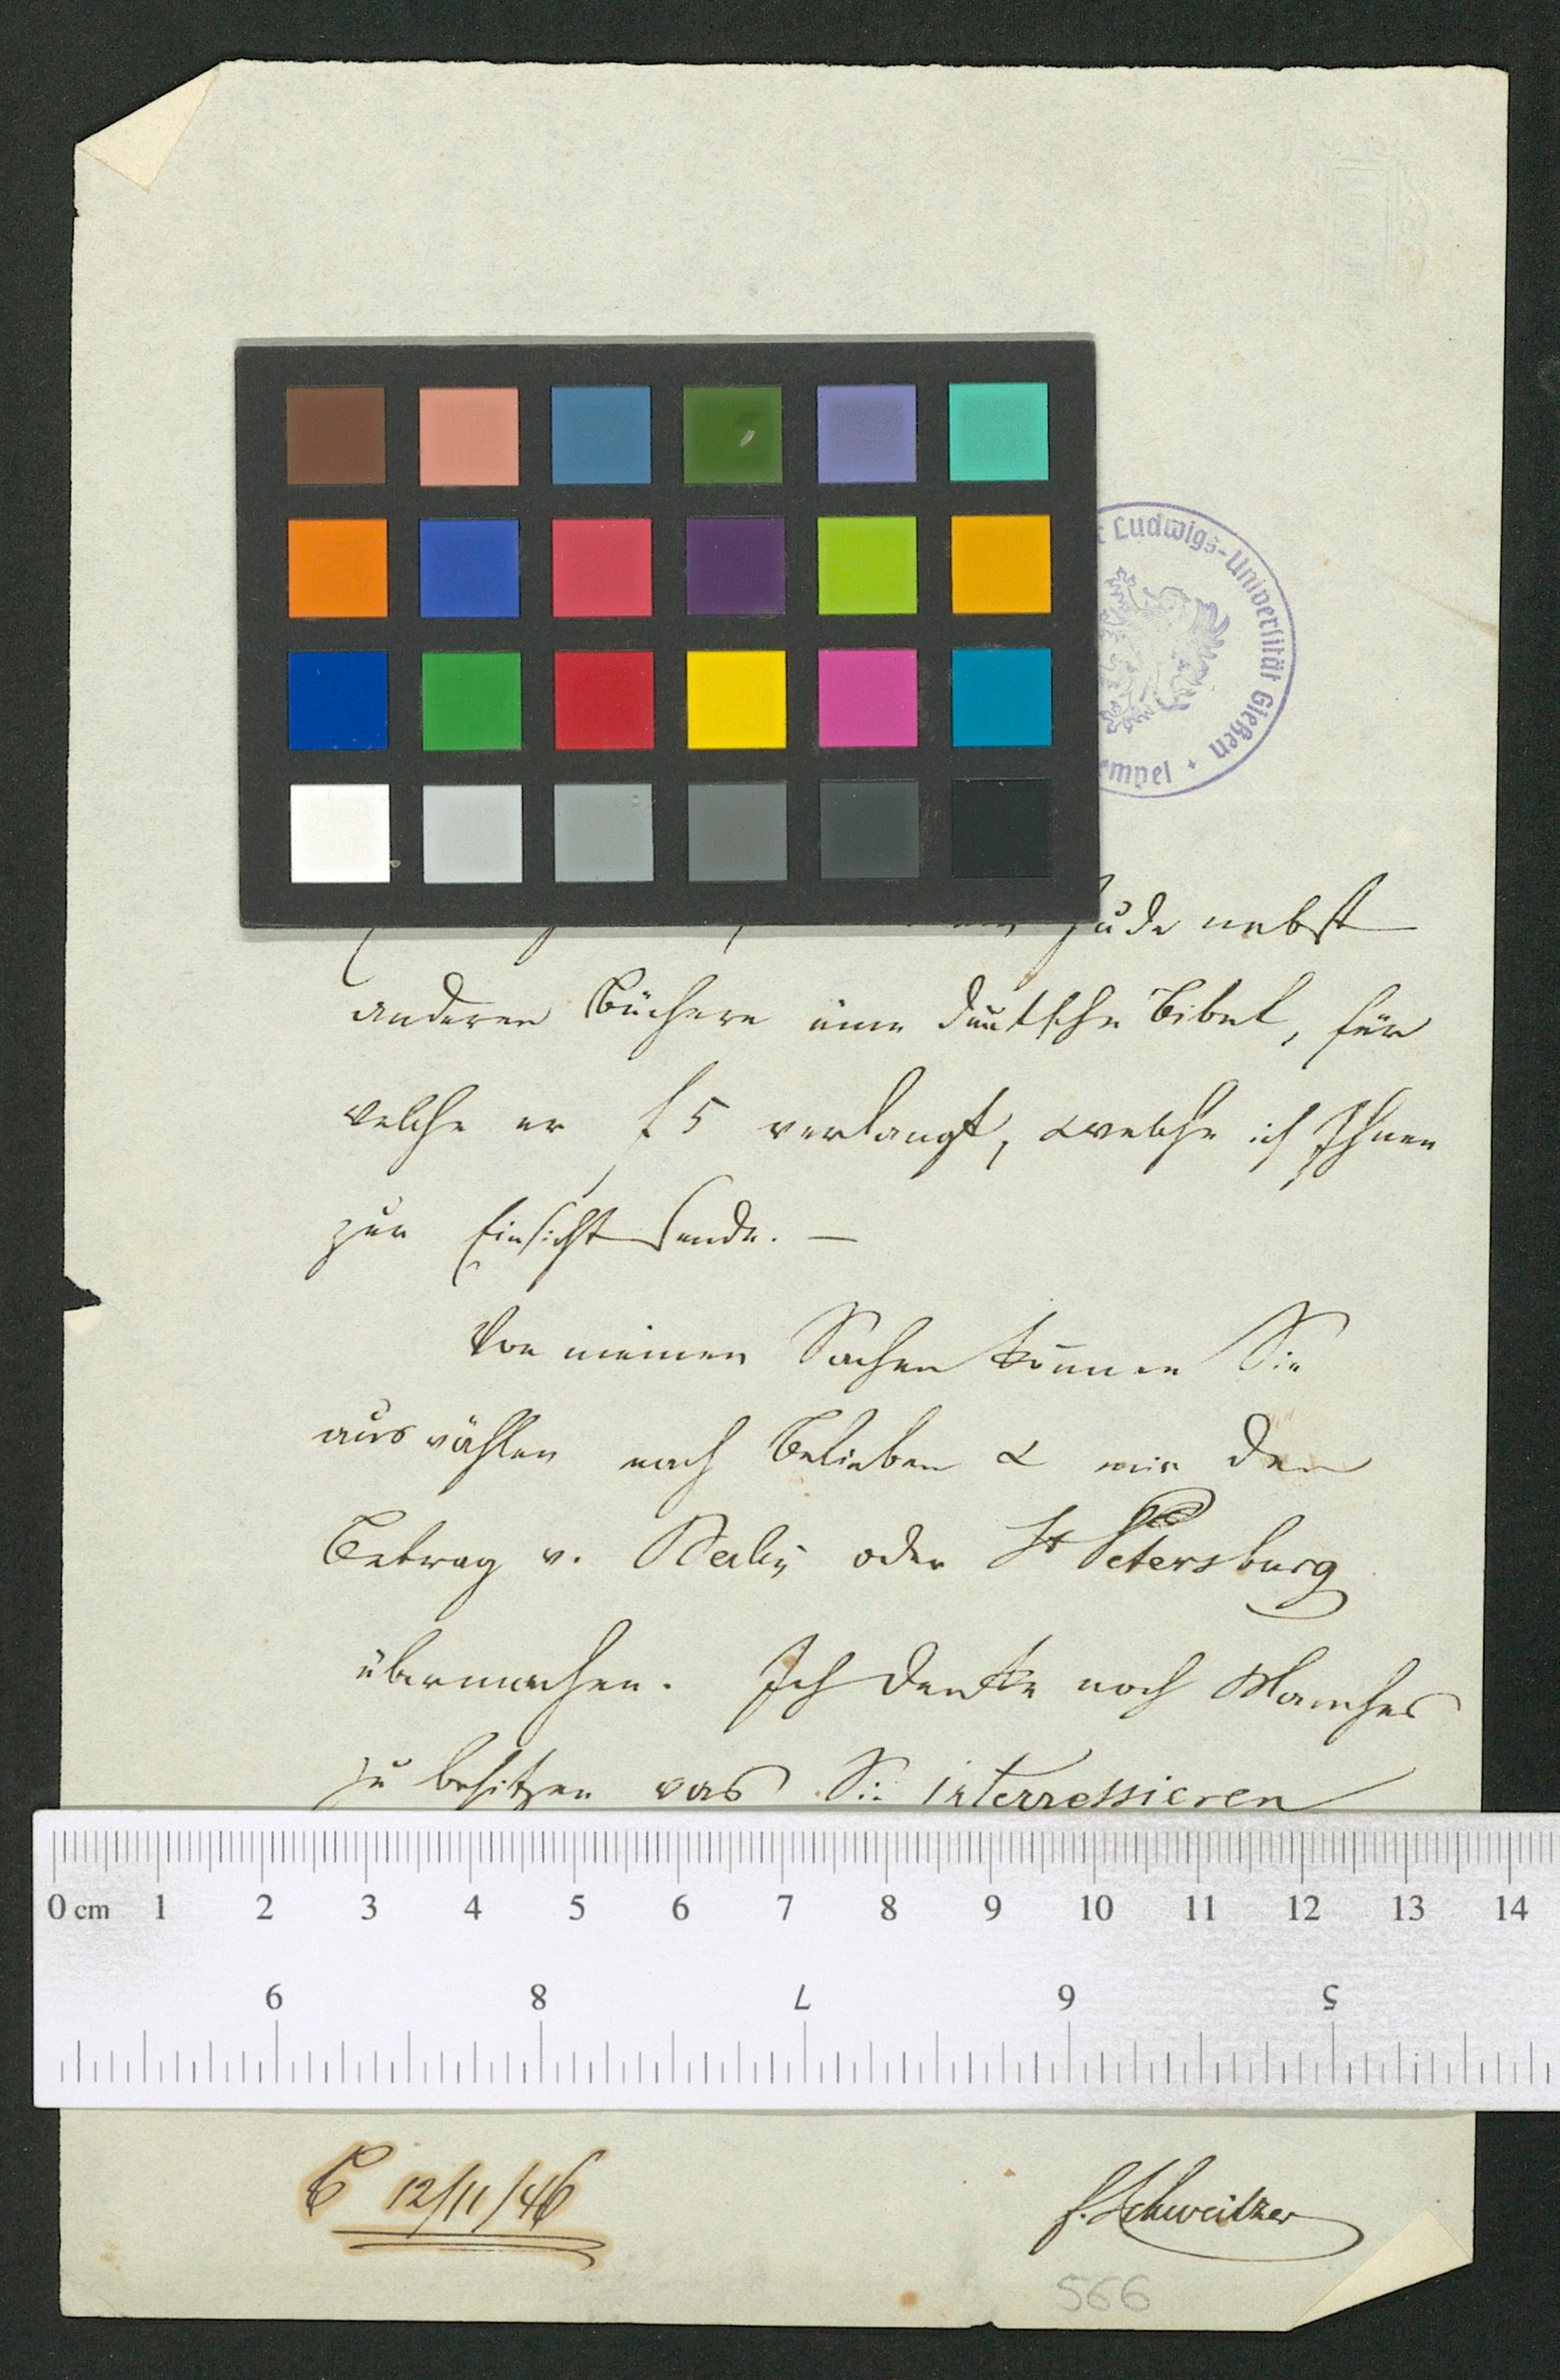 Ludwigs-Universität Gießen
Jude nebst
anderen Büchern eine deutsche Bibel, für
welche er f 5 verlangt, & welche ich Ihnen
zur Einsicht sende. —
Von meinen Sachen können Sie
auswählen nach Belieben & mir den
Betrag v. oder St Petersburg
übermachen. Ich denke noch Manches
zu besitzen was Sie interressieren
0 cm 1 2 3 4 5 6 7 8 9 10 11 12 13 14
9 8 7 6 5
12/11/46
f. Schweitzer
566